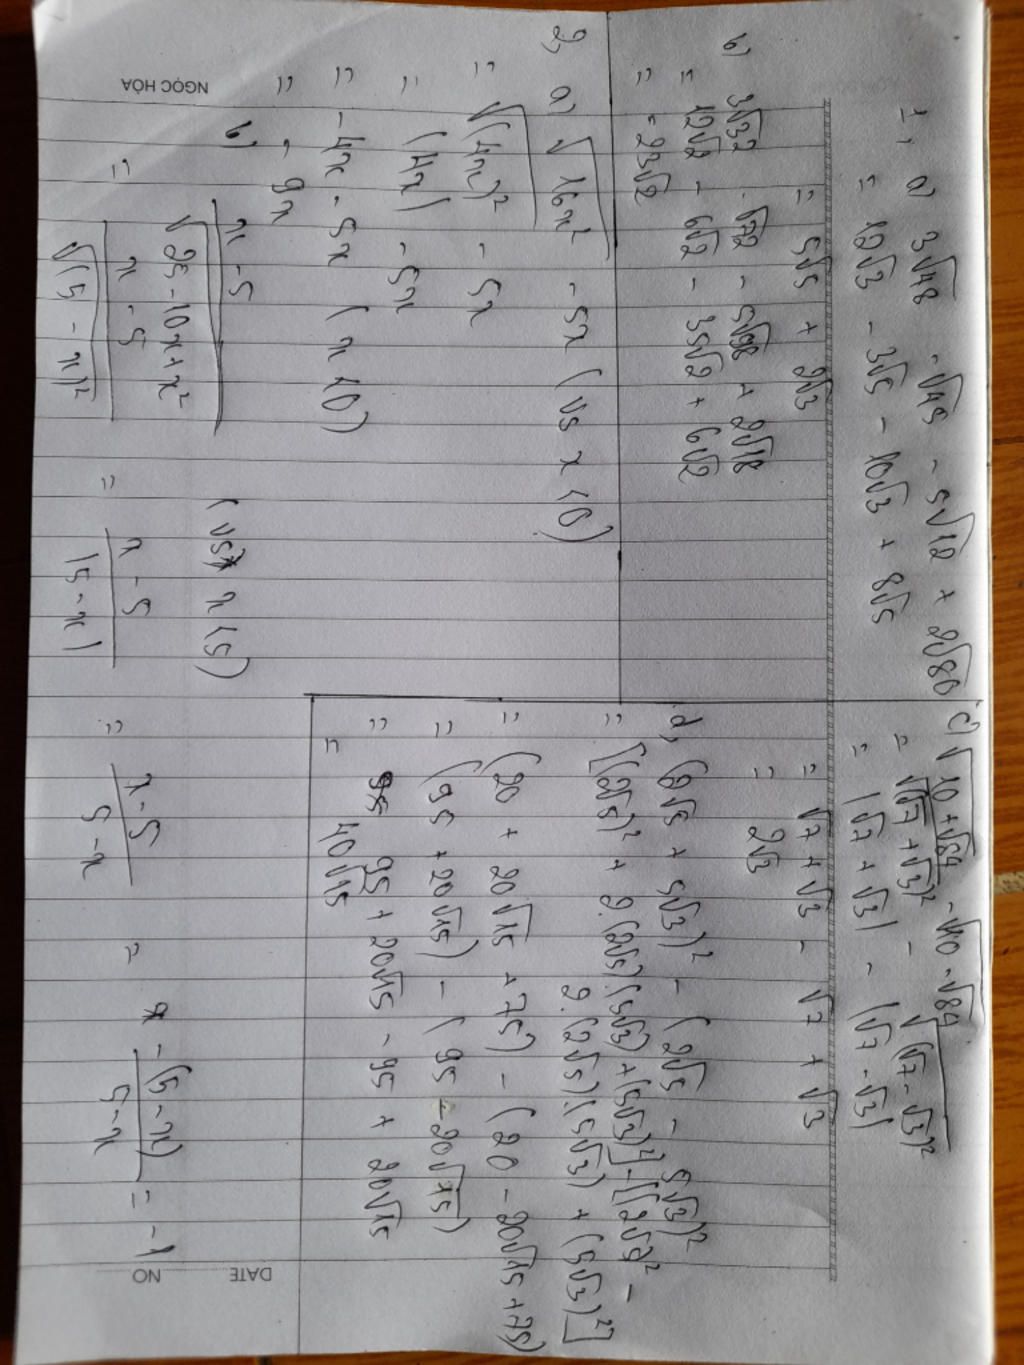 1, a) 3√48 - √45 - 5√12 + 2√80
= 12√3 - 3√5 - 10√3 + 8√5
= 5√5 + 2√3
b) 3√32 - √72 - 5√98 + 2√18
= 12√2 - 6√2 - 35√2 + 6√2
= -23√2
c) √10 + √84 - √10 - √84
= √(√7 + √3)² - √(√7 - √3)²
= |√7 + √3| - |√7 - √3|
= √7 + √3 - √7 + √3
= 2√3
d, (2√5 + 5√3)² - (2√5 - 5√3)²
= [(2√5)² + 2.(2√5).(5√3) + (5√3)²] - [(2√5)² -
2.(2√5).(5√3) + (5√3)²]
= (20 + 20√15 + 75) - (20 - 20√15 + 75)
= (95 + 20√15) - (95 - 20√15)
= 95 + 20√15 - 95 + 20√15
= 40√15
2, a) √16x² - 5x (vs x < 0)
= √(4x)² - 5x
= |4x| - 5x
= -4x - 5x (x < 0)
= -9x
b) x - 5
√25 - 10x + x² (vs x < 5)
= x - 5
√(5 - x)²
= x - 5
|5 - x|
= x - 5
5 - x
= -(5 - x)
5 - x
= -1
NGỌC HÒA
DATE
NO